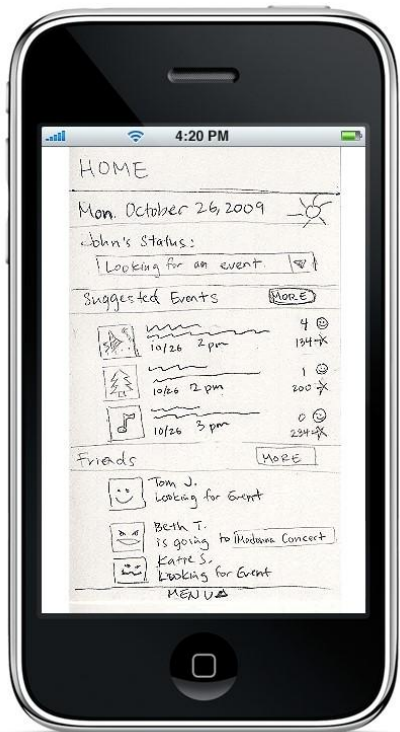 4:20 PM
HOME
Mon. October 26, 2009
John's Status:
Looking for an event.
Suggested Events MORE
4
10/26 2 pm 134
1
10/26 2 pm 200
0
10/26 3 pm 234
Friends MORE
Tom J.
Looking for Event
Beth T.
is going to Madonna Concert
Katie S.
Looking for Event
MENU